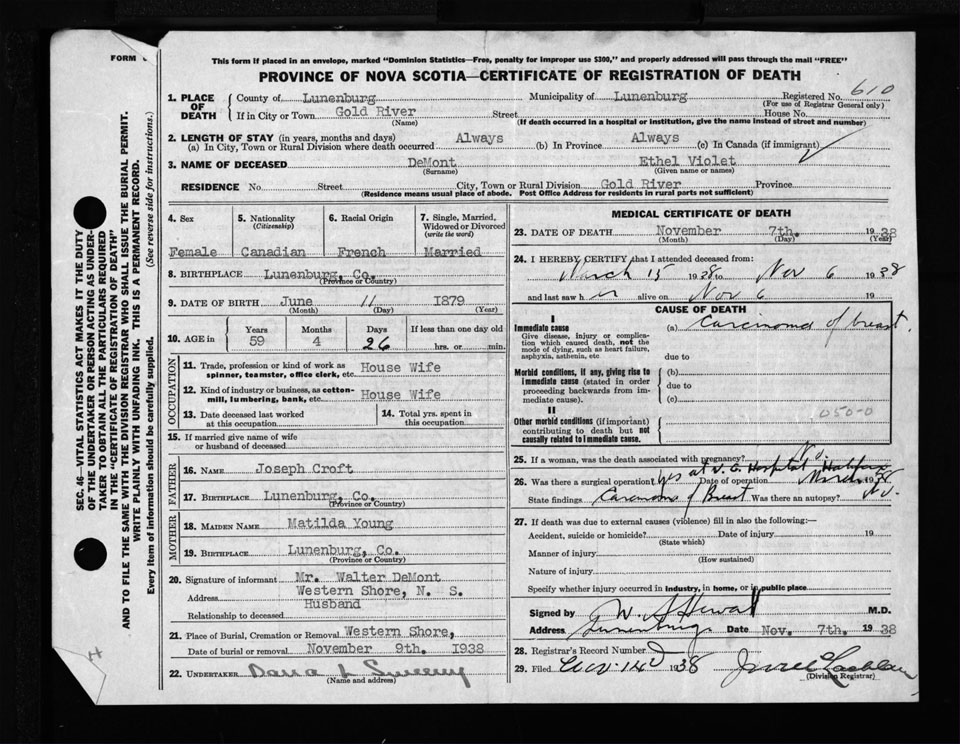 FORM
This form if placed in an envelope, marked "Dominion Statistics—Free, penalty for improper use $300," and properly addressed will pass through the mail "FREE"
PROVINCE OF NOVA SCOTIA—CERTIFICATE OF REGISTRATION OF DEATH
1. PLACE OF DEATH County of Lunenburg Municipality of Lunenburg Registered No. 610
(For use of Registrar General only)
If in City or Town Gold River Street House No.
(Name) (If death occurred in a hospital or institution, give the name instead of street and number)
2. LENGTH OF STAY (in years, months and days)
(a) In City, Town or Rural Division where death occurred Always (b) In Province Always (c) In Canada (if immigrant)
3. NAME OF DECEASED DeMont Ethel Violet
(Surname) (Given name or names)
RESIDENCE No. Street City, Town or Rural Division Gold River Province
(Residence means usual place of abode. Post Office Address for residents in rural parts not sufficient)
4. Sex 5. Nationality (Citizenship) 6. Racial Origin 7. Single, Married, Widowed or Divorced (write the word)
Female Canadian French Married
8. BIRTHPLACE Lunenburg, Co.
(Province or Country)
9. DATE OF BIRTH June 11 1879
(Month) (Day) (Year)
10. AGE in Years Months Days If less than one day old
59 4 26 hrs. or min.
OCCUPATION
11. Trade, profession or kind of work as spinner, teamster, office clerk, etc. House Wife
12. Kind of industry or business, as cotton-mill, lumbering, bank, etc. House Wife
13. Date deceased last worked at this occupation 14. Total yrs. spent in this occupation
15. If married give name of wife or husband of deceased
FATHER
16. NAME Joseph Croft
17. BIRTHPLACE Lunenburg, Co.
(Province or Country)
MOTHER
18. MAIDEN NAME Matilda Young
19. BIRTHPLACE Lunenburg, Co.
(Province or Country)
20. Signature of informant Mr. Walter DeMont
Address Western Shore, N. S.
Relationship to deceased Husband
21. Place of Burial, Cremation or Removal Western Shore,
Date of burial or removal November 9th. 1938
22. UNDERTAKER Sweeny
(Name and address)
MEDICAL CERTIFICATE OF DEATH
23. DATE OF DEATH November 7th. 1938
(Month) (Day) (Year)
24. I HEREBY CERTIFY that I attended deceased from:
March 15 1938 to Nov 6 1938
and last saw her alive on Nov 6 19
CAUSE OF DEATH
I
Immediate cause (a) Carcinoma of breast.
Give disease, injury or complication which caused death, not the mode of dying, such as heart failure, asphyxia, asthenia, etc due to
Morbid conditions, if any, giving rise to immediate cause (stated in order proceeding backwards from immediate cause). (b)
due to
(c)
II
050-0
Other morbid conditions (if important) contributing to death but not causally related to immediate cause.
25. If a woman, was the death associated with pregnancy? No
26. Was there a surgical operation? Yes at V. G. Hospital Halifax Date of operation March 1938
State findings Carcinoma of Breast Was there an autopsy? No.
27. If death was due to external causes (violence) fill in also the following:—
Accident, suicide or homicide? Date of injury 19
(State which)
Manner of injury
(How sustained)
Nature of injury
Specify whether injury occurred in industry, in home, or in public place
Signed by M.D.
Address Lunenburg Date Nov. 7th. 1938
28. Registrar's Record Number
29. Filed 1938
(Division Registrar)
SEC. 46—VITAL STATISTICS ACT MAKES IT THE DUTY
OF THE UNDERTAKER OR PERSON ACTING AS UNDER-
TAKER TO OBTAIN ALL THE PARTICULARS REQUIRED
IN THE "CERTIFICATE OF REGISTRATION OF DEATH"
AND TO FILE THE SAME WITH THE DIVISION REGISTRAR WHO SHALL ISSUE THE BURIAL PERMIT.
WRITE PLAINLY WITH UNFADING INK. THIS IS A PERMANENT RECORD.
Every item of information should be carefully supplied. (See reverse side for instructions.)